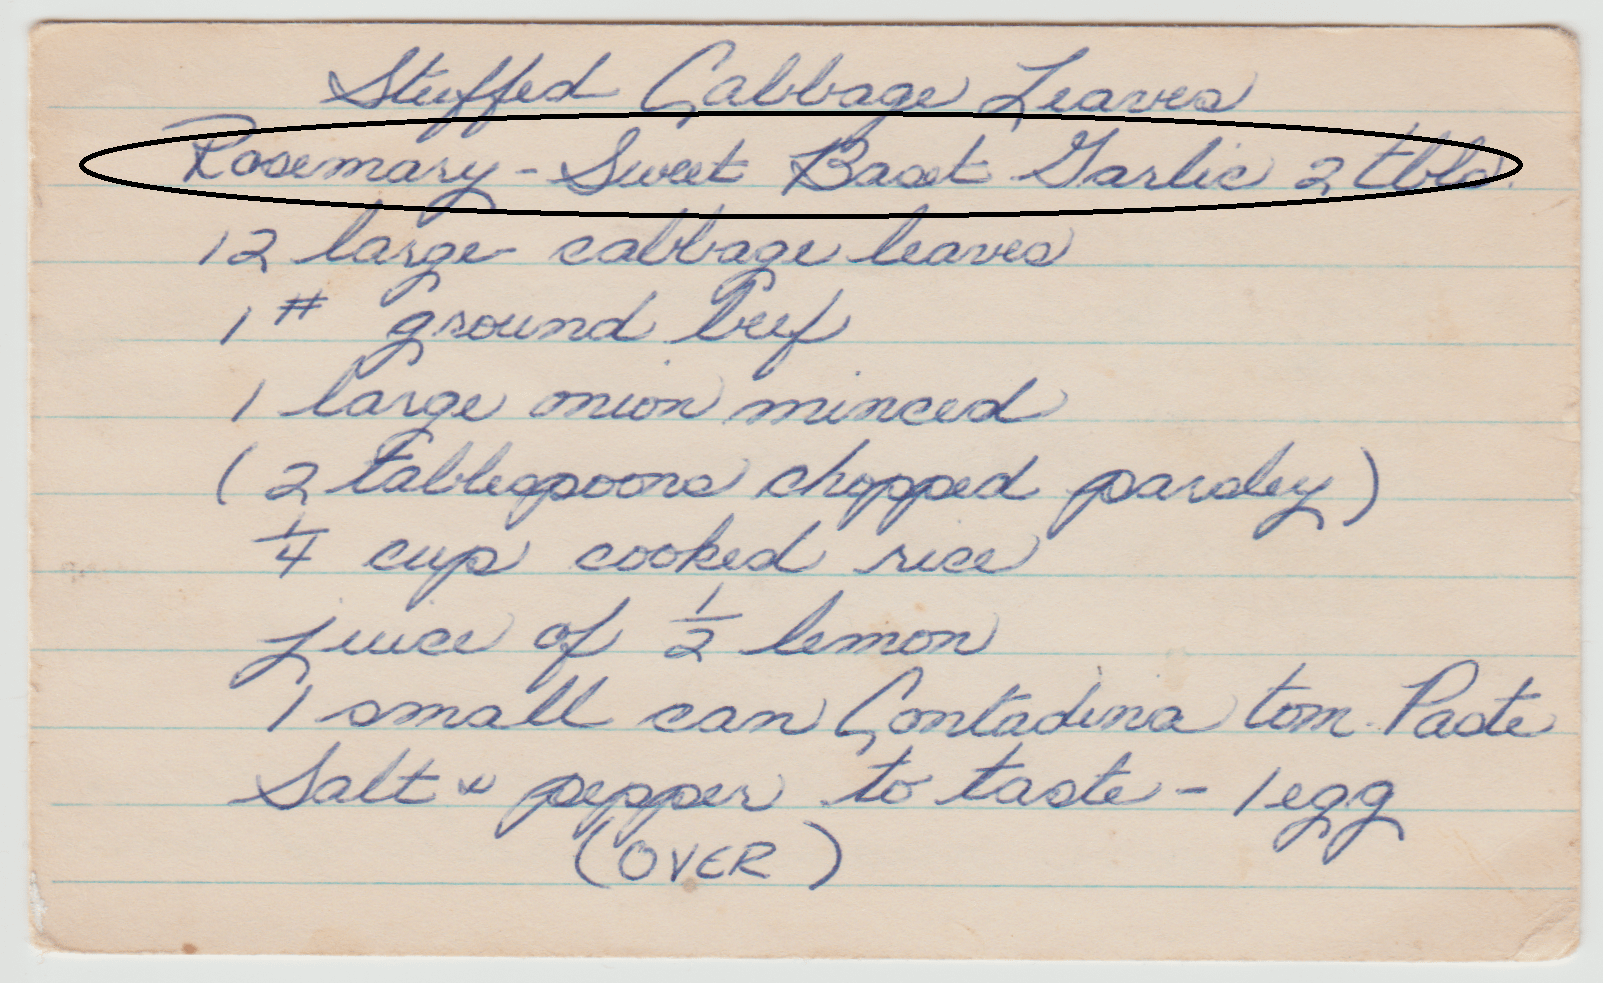 Stuffed Cabbage Leaves
Rosemary - Sweet Garlic 2 tbls.
12 large cabbage leaves
1 # ground beef
1 large onion minced
(2 Tablespoons chopped parsley)
1/4 cup cooked rice
juice of 1/2 lemon
1 small can Contadina tom. Paste
Salt & pepper to taste - 1 egg
(OVER)